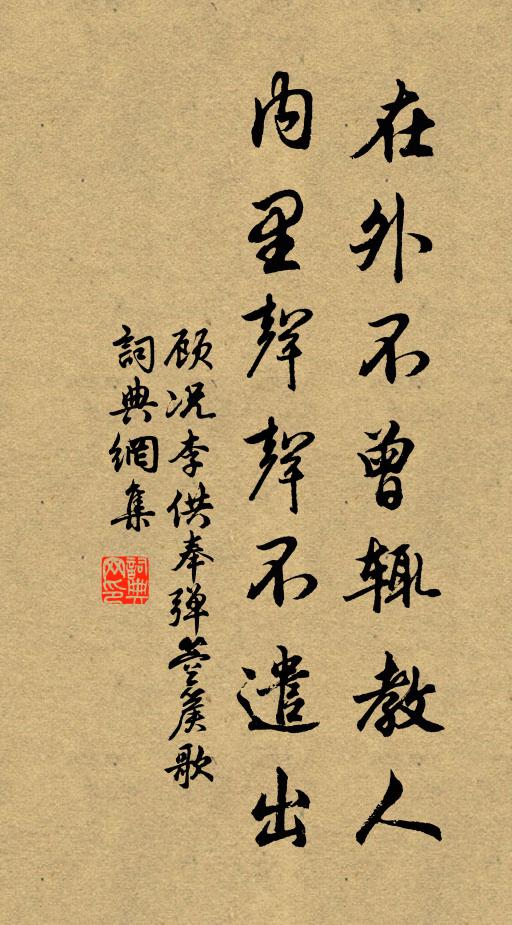 在外不曾辄教人
内里聲聲不遣出
顾况李供奉弹箜篌歌
詞典網集
詞典网印